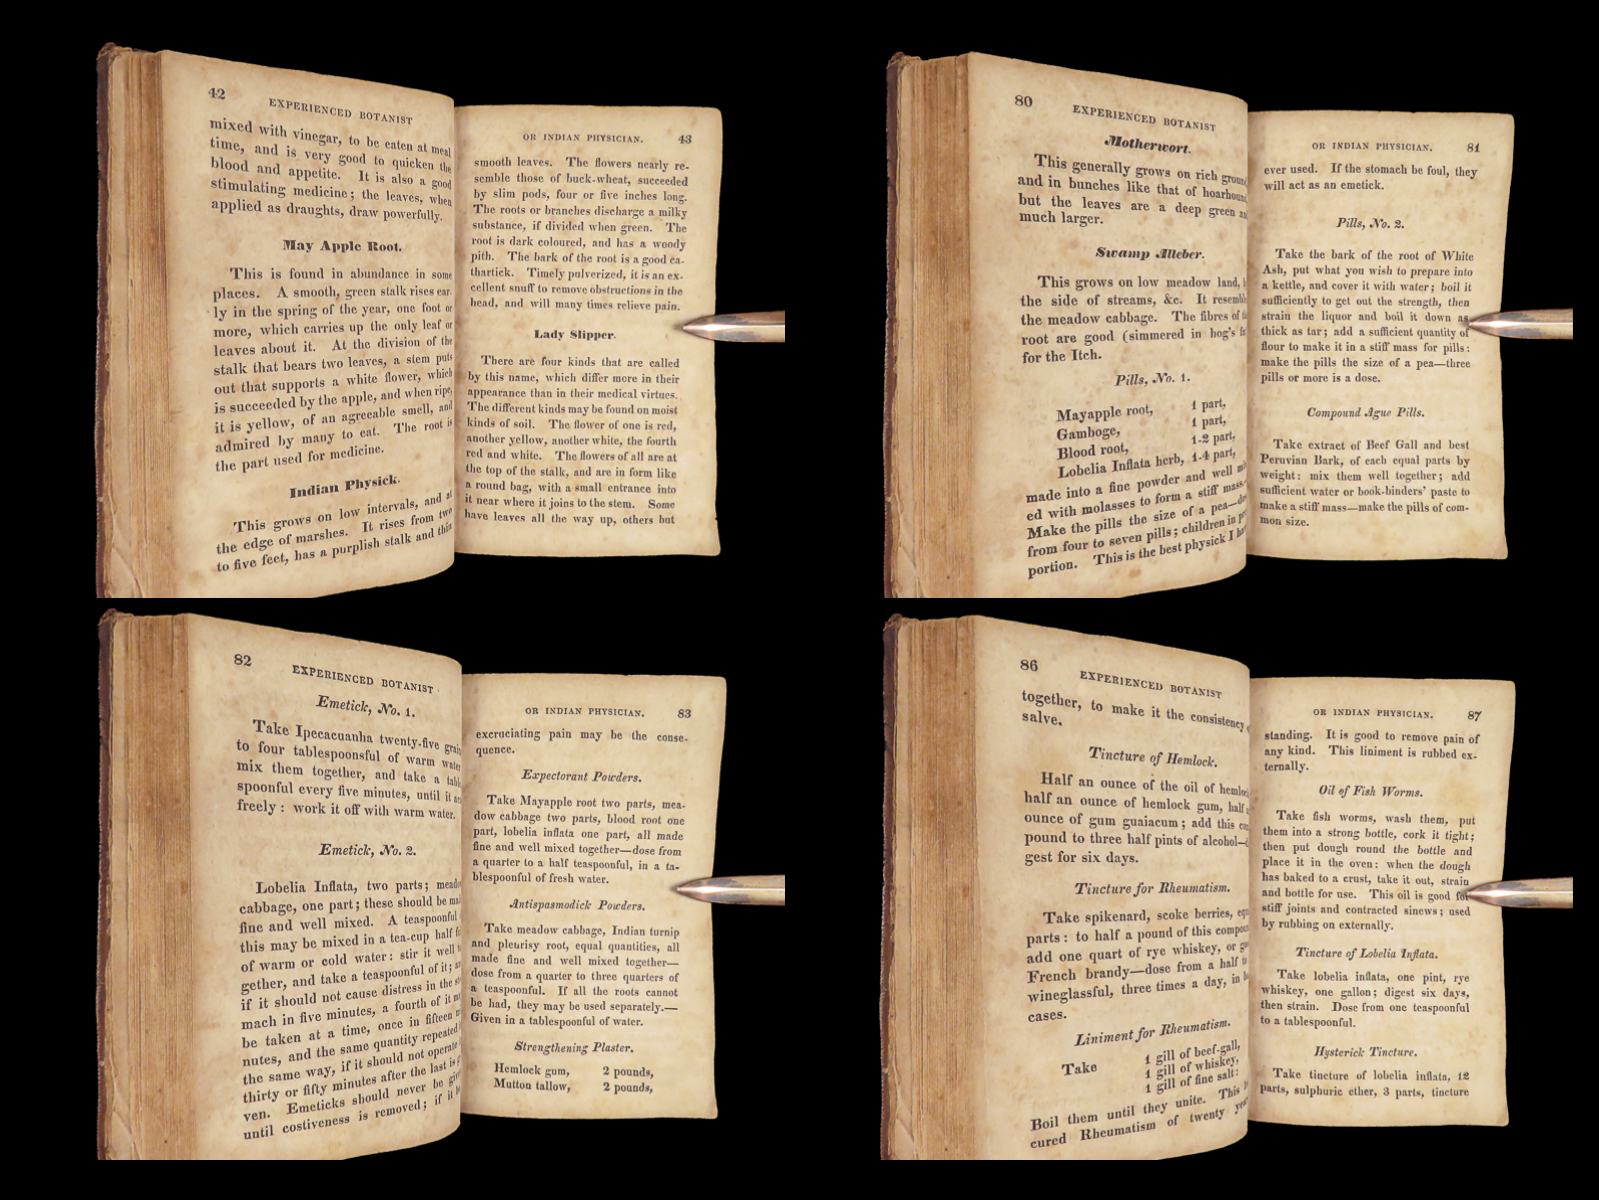 42
EXPERIENCED BOTANIST
mixed with vinegar, to be eaten at meal
time, and is very good to quicken the
blood and appetite. It is also a good
stimulating medicine; the leaves, when
applied as draughts, draw powerfully.
May Apple Root.
This is found in abundance in some
places. A smooth, green stalk rises ear-
ly in the spring of the year, one foot or
more, which carries up the only leaf or
leaves about it. At the division of the
stalk that bears two leaves, a stem puts
out that supports a white flower, which
is succeeded by the apple, and when ripe,
it is yellow, of an agreeable smell, and
admired by many to eat. The root is
the part used for medicine.
Indian Physick.
This grows on low intervals, and at
the edge of marshes. It rises from two
to five feet, has a purplish stalk and thin
OR INDIAN PHYSICIAN. 43
smooth leaves. The flowers nearly re-
semble those of buck-wheat, succeeded
by slim pods, four or five inches long.
The roots or branches discharge a milky
substance, if divided when green. The
root is dark coloured, and has a woody
pith. The bark of the root is a good ca-
thartick. Timely pulverized, it is an ex-
cellent snuff to remove obstructions in the
head, and will many times relieve pain.
Lady Slipper.
There are four kinds that are called
by this name, which differ more in their
appearance than in their medical virtues.
The different kinds may be found on moist
kinds of soil. The flower of one is red,
another yellow, another white, the fourth
red and white. The flowers of all are at
the top of the stalk, and are in form like
a round bag, with a small entrance into
it near where it joins to the stem. Some
have leaves all the way up, others but
80
EXPERIENCED BOTANIST
Motherwort.
This generally grows on rich ground,
and in bunches like that of hoarhound,
but the leaves are a deep green
much larger.
Swamp Alleber.
This grows on low meadow land,
the side of streams, &c. It
the meadow cabbage. The fibres of
root are good (simmered in hog's
for the Itch.
Pills, No. 1.
Mayapple root, 1 part,
Gamboge, 1 part,
Blood root, 1-2 part,
Lobelia Inflata herb, 1-4 part,
made into a fine powder and well
ed with molasses to form a stiff mass.
Make the pills the size of a pea—
from four to seven pills; children in
portion. This is the best physick I
OR INDIAN PHYSICIAN. 81
ever used. If the stomach be foul, they
will act as an emetick.
Pills, No. 2.
Take the bark of the root of White
Ash, put what you wish to prepare into
a kettle, and cover it with water; boil it
sufficiently to get out the strength, then
strain the liquor and boil it down as
thick as tar; add a sufficient quantity of
flour to make it in a stiff mass for pills:
make the pills the size of a pea—three
pills or more is a dose.
Compound Ague Pills.
Take extract of Beef Gall and best
Peruvian Bark, of each equal parts by
weight: mix them well together; add
sufficient water or book-binders' paste to
make a stiff mass—make the pills of com-
mon size.
82
EXPERIENCED BOTANIST
Emetick, No. 1.
Take Ipecacuanha twenty-five
to four tablespoonsful of warm water
mix them together, and take a
spoonful every five minutes, until it
freely: work it off with warm water.
Emetick, No. 2.
Lobelia Inflata, two parts;
cabbage, one part; these should be
fine and well mixed. A teaspoonful
this may be mixed in a tea-cup half
of warm or cold water: stir it well
gether, and take a teaspoonful of it;
if it should not cause distress in the
mach in five minutes, a fourth of it
be taken at a time, once in fifteen
nutes, and the same quantity repeated
the same way, if it should not operate
thirty or fifty minutes after the last is
ven. Emeticks should never be
until costiveness is removed; if it
OR INDIAN PHYSICIAN. 83
excruciating pain may be the conse-
quence.
Expectorant Powders.
Take Mayapple root two parts, mea-
dow cabbage two parts, blood root one
part, lobelia inflata one part, all made
fine and well mixed together—dose from
a quarter to a half teaspoonful, in a ta-
blespoonful of fresh water.
Antispasmodick Powders.
Take meadow cabbage, Indian turnip
and pleurisy root, equal quantities, all
made fine and well mixed together—
dose from a quarter to three quarters of
a teaspoonful. If all the roots cannot
be had, they may be used separately.—
Given in a tablespoonful of water.
Strengthening Plaster.
Hemlock gum, 2 pounds,
Mutton tallow, 2 pounds,
86
EXPERIENCED BOTANIST
together, to make it the consistency
salve.
Tincture of Hemlock.
Half an ounce of the oil of hemlock,
half an ounce of hemlock gum, half
ounce of gum guaiacum; add this
pound to three half pints of alcohol—
gest for six days.
Tincture for Rheumatism.
Take spikenard, scoke berries,
parts: to half a pound of this
add one quart of rye whiskey, or
French brandy—dose from a half
wineglassful, three times a day, in
cases.
Liniment for Rheumatism.
Take 1 gill of beef-gall,
1 gill of whiskey,
1 gill of fine salt:
Boil them until they unite. This
cured Rheumatism of twenty
OR INDIAN PHYSICIAN. 87
standing. It is good to remove pain of
any kind. This liniment is rubbed ex-
ternally.
Oil of Fish Worms.
Take fish worms, wash them, put
them into a strong bottle, cork it tight;
then put dough round the bottle and
place it in the oven: when the dough
has baked to a crust, take it out, strain
and bottle for use. This oil is good for
stiff joints and contracted sinews; used
by rubbing on externally.
Tincture of Lobelia Inflata.
Take lobelia inflata, one pint, rye
whiskey, one gallon; digest six days,
then strain. Dose from one teaspoonful
to a tablespoonful.
Hysterick Tincture.
Take tincture of lobelia inflata, 12
parts, sulphuric ether, 3 parts, tincture